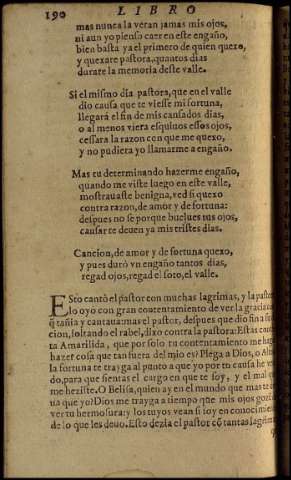 190 LIBRO
mas nunca la veran jamas mis ojos,
ni aun yo pienso caer en este engaño,
bien basta ya el primero de quien quexo,
y quexare pastora, quantos dias
durare la memoria deste valle.
Si el mismo dia pastora, que en el valle
dio causa que te viesse mi fortuna,
llegará el fin de mis cansados dias,
o al menos viera esquiuos essos ojos,
cessara la razon con que me quexo,
y no pudiera yo llamarme a engaño.
Mas tu determinando hazerme engaño,
quando me viste luego en este valle,
mostrauaste benigna, ved si quexo
contra razon, de amor y de fortuna:
despues no se porque buelues tus ojos,
cansarte deuen ya mis tristes dias.
Cancion, de amor y de fortuna quexo,
y pues duró vn engaño tantos dias,
regad ojos, regad el soto, el valle.
Esto cantò el pastor con muchas lagrimas, y la pastora
lo oyo con gran contentamiento de ver la gracia
q̃ tañia y cantaua: mas el pastor, despues que dio fin a su
cion, soltando el rabel, dixo contra la pastora: Estas
ta Amarilida, que por solo tu contentamiento me haga
hazer cosa que tan fuera del mio es? Plega a Dios, o
la fortuna te trayga al punto a que yo por tu causa he
do, para que sientas el cargo en que te soy, y el mal
me heziste. O Belisa, quien ay en el mundo que mas te
ua que yo? Dios me trayga a tiempo que mis ojos
ver tu hermosura, y los tuyos vean si soy en
de lo que les deuo. Esto dezia el pastor cõ tantas lagrimas